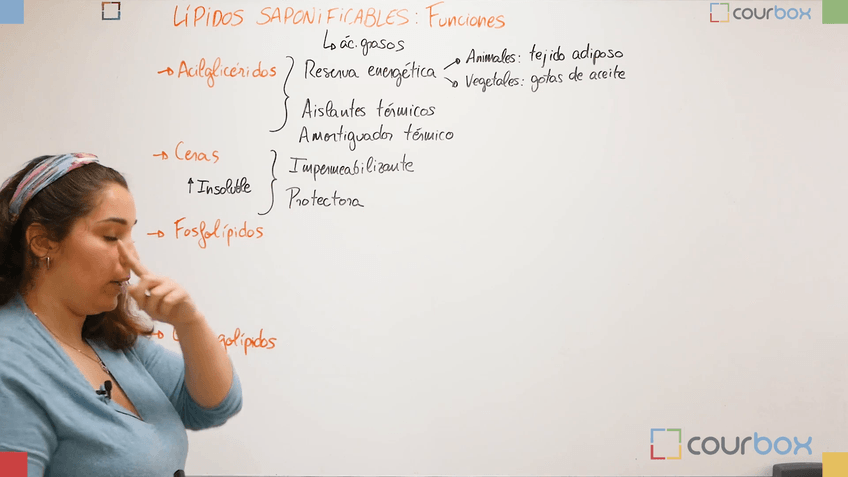 LÍPIDOS SAPONIFICABLES: Funciones
courbox
ác. grasos
Acilglicéridos
Reserva energética
Animales: tejido adiposo
Vegetales: gotas de aceite
Aislantes térmicos
Amortiguador térmico
Ceras
Insoluble
Impermeabilizante
Protectora
Fosfolípidos
courbox